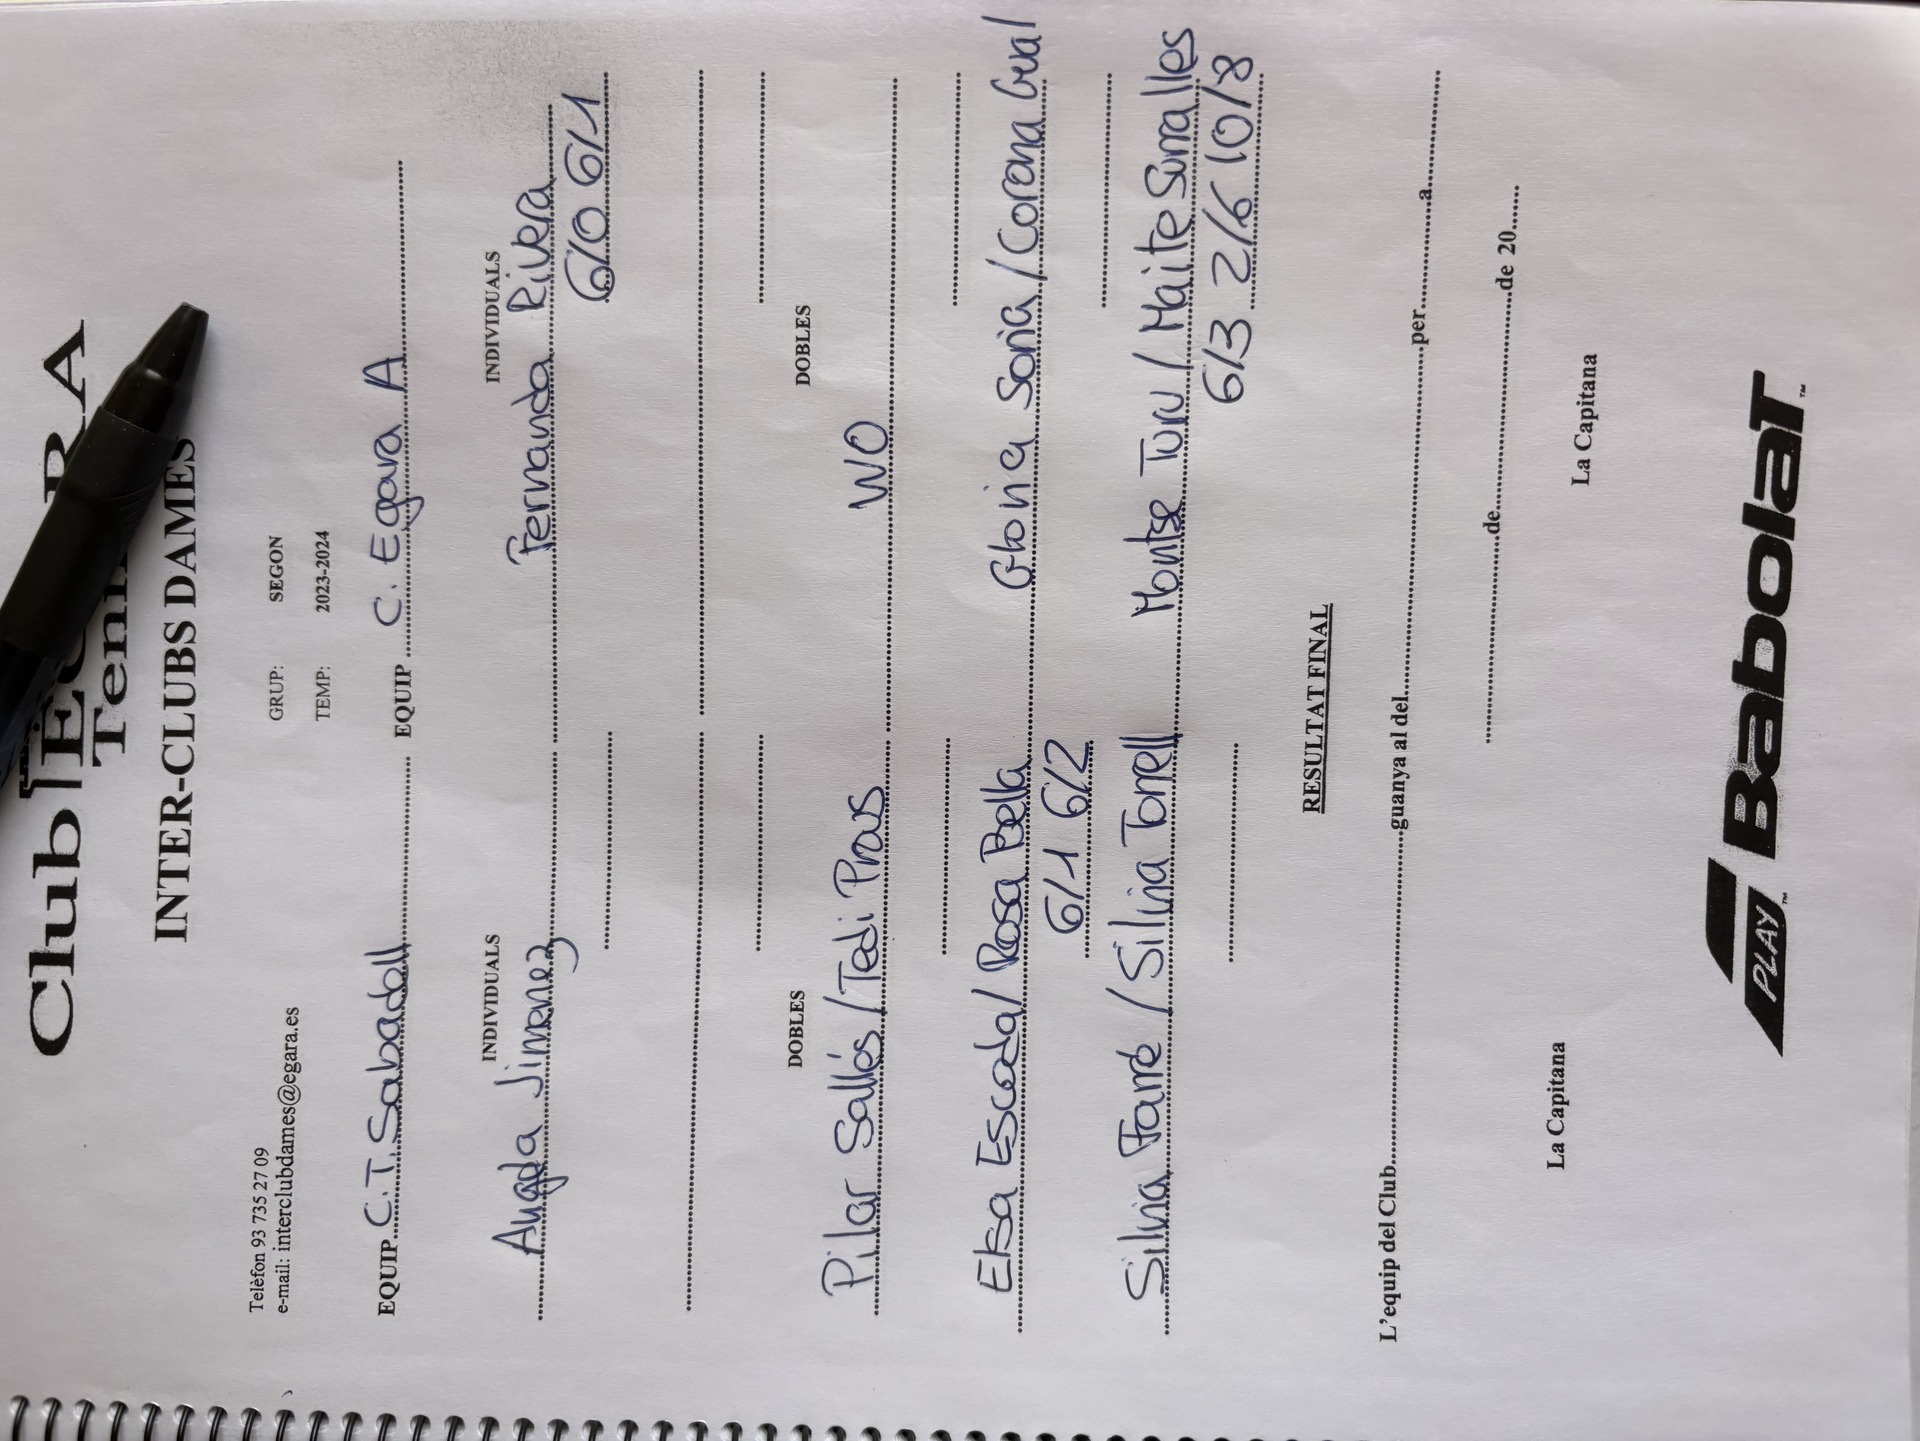 Club
Tenn
INTER-CLUBS DAMES
Telèfon 93 735 27 09
e-mail: interclubdames@egara.es
GRUP: SEGON
TEMP: 2023-2024
EQUIP C.T. Sabadell EQUIP C. Egara A
INDIVIDUALS INDIVIDUALS
Jimenez Fernanda Rivera
6/0 6/1
DOBLES DOBLES
Pilar Sallés / Tedi Prous WO
Elisa Escoda / Rosa Pella Gloria Soria / Corona Gual
6/1 6/2
Silvia Farré / Silvia Torrell Montse Turu / Maite Surralles
6/3 2/6 10/8
RESULTAT FINAL
L'equip del Club guanya al del per a
de de 20
La Capitana La Capitana
PLAY™ Babolat™